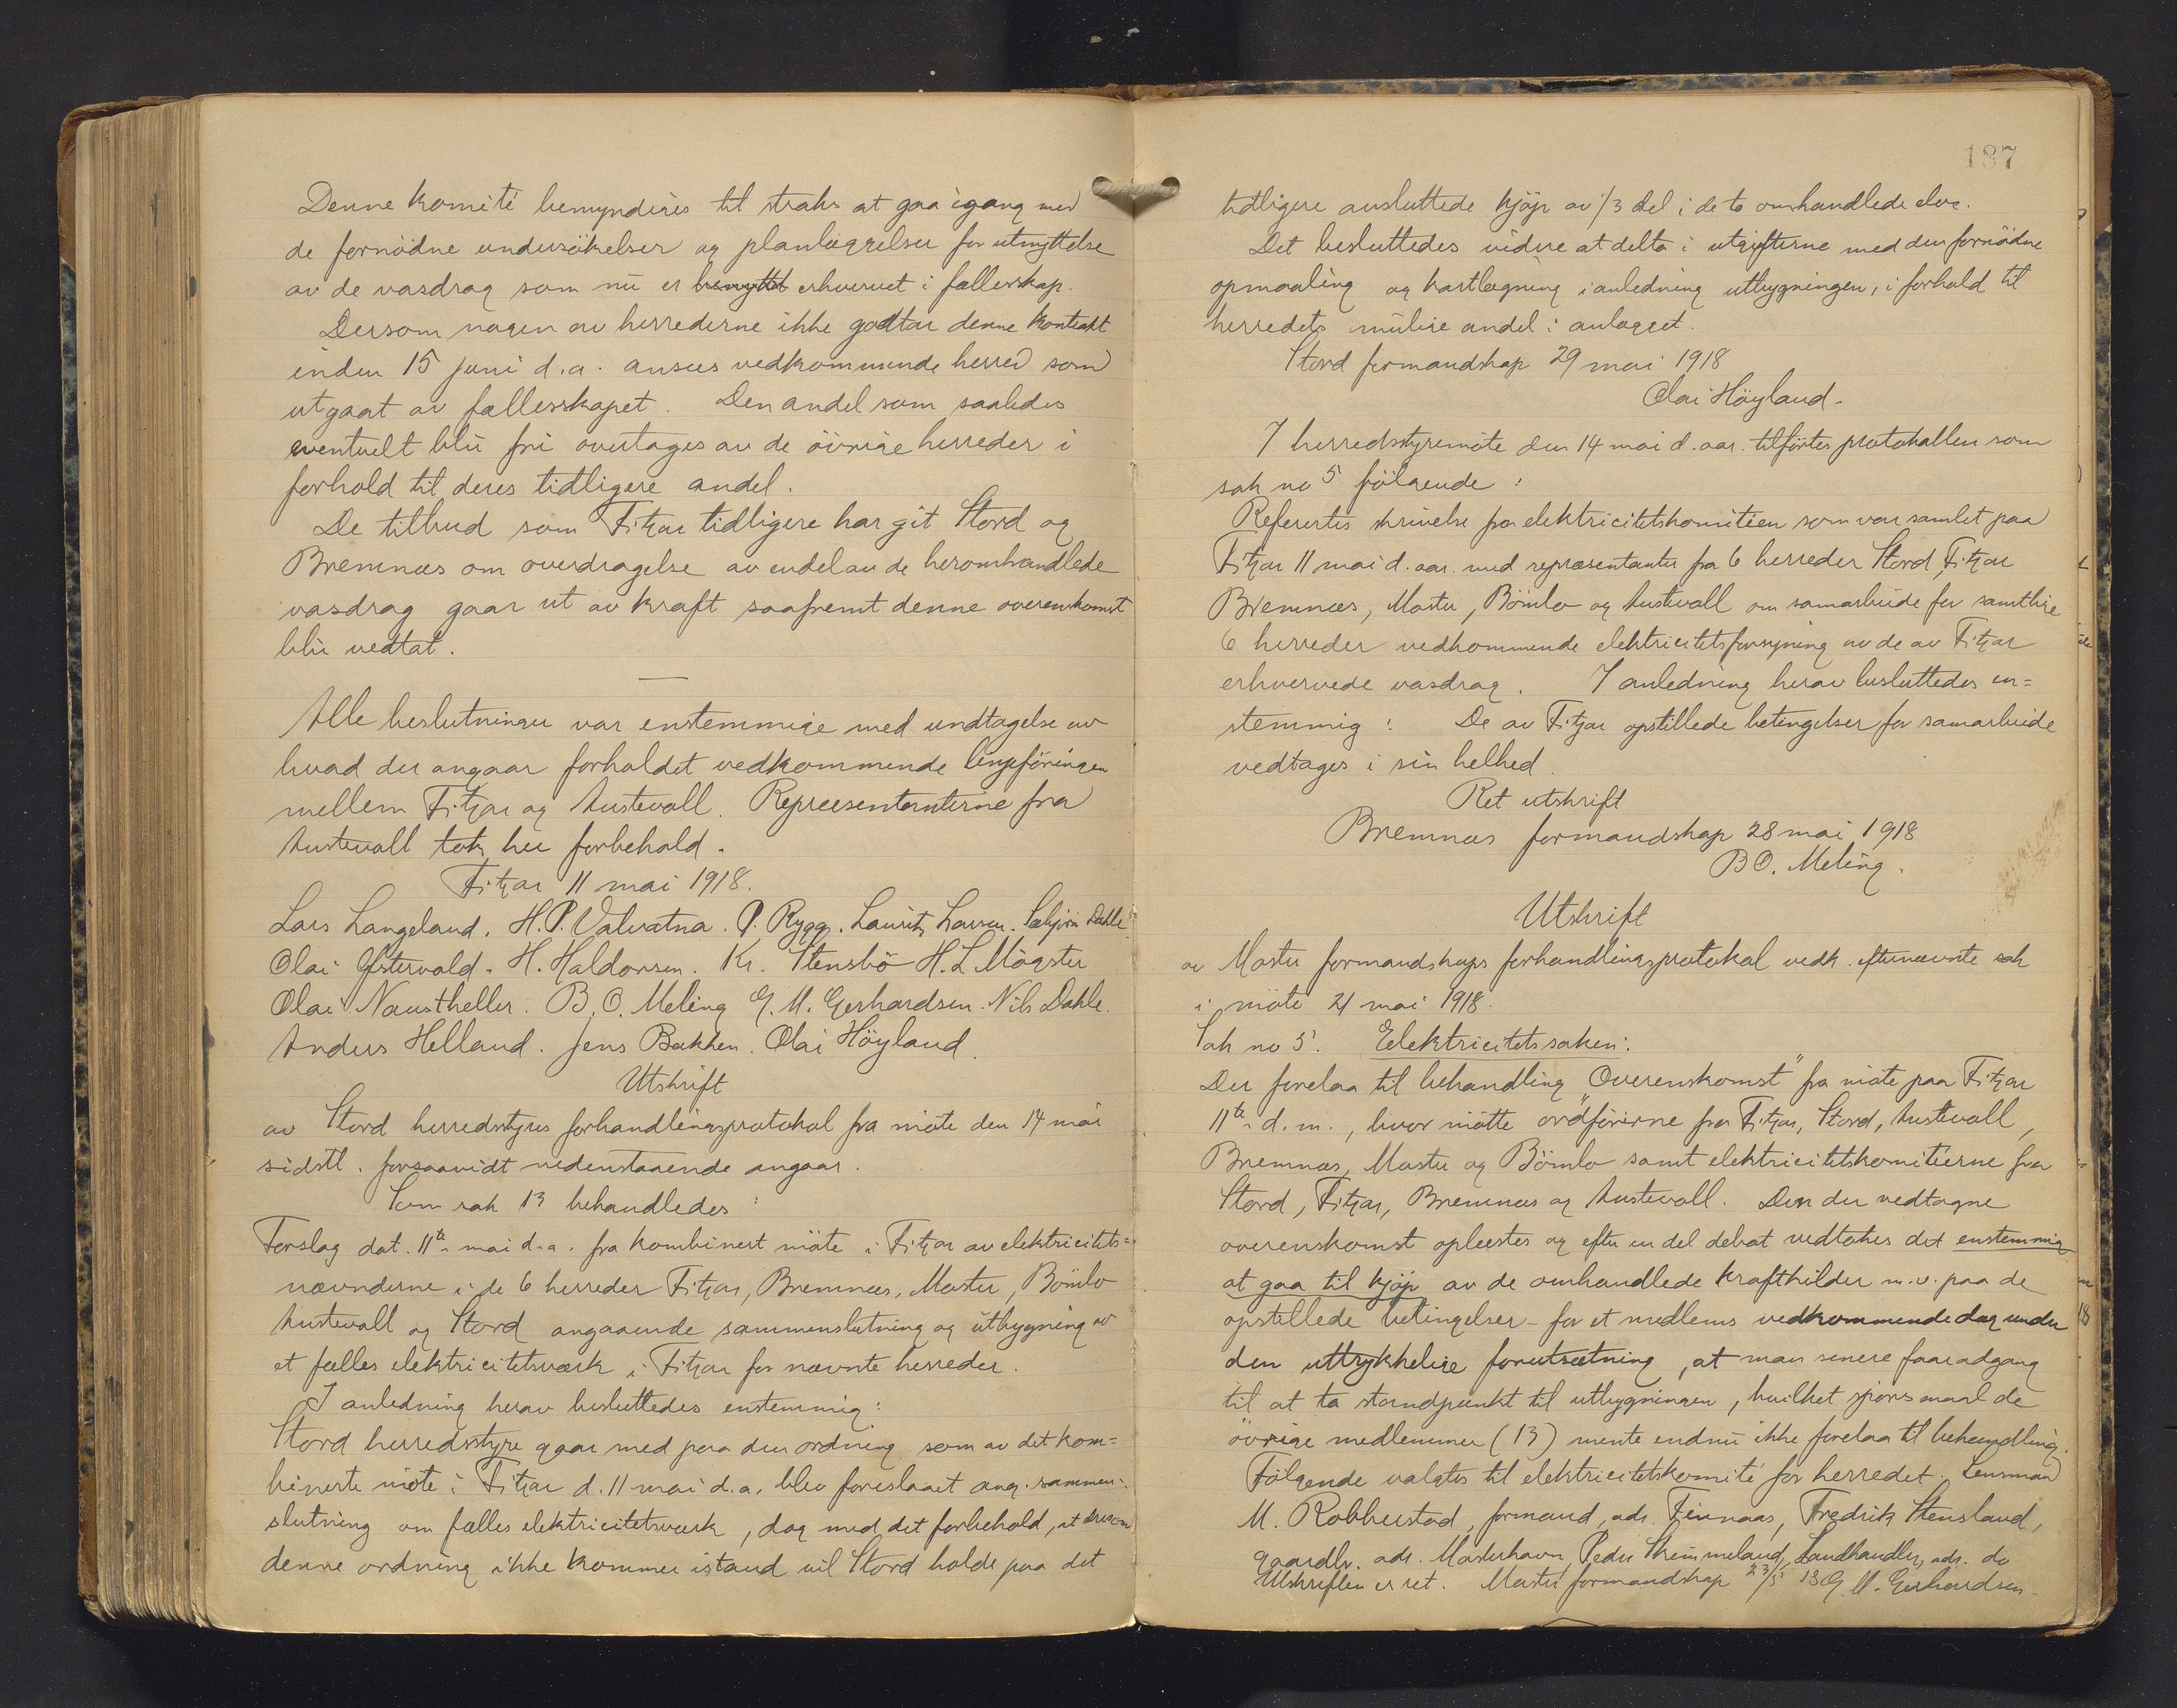 Denne komité bemyndiges til straks at gaa igang med
de fornödne undersökelser og planlæggelser for utnyttelse
av de vasdrag som nu er benyttet erhvervet i fællesskap.
Dersom nogen av herrederne ikke godtar denne kontrakt
inden 15 juni d.a. ansees vedkommende herred som
utgaat av fællesskapet. Den andel som saaledes
eventuelt blir fri overtages av de övrige herreder i
forhold til deres tidligere andel.
De tilbud som Fitjar tidligere har git Stord og
Bremnæs om overdragelse av endel av de heromhandlede
vasdrag gaar ut av kraft saafremt denne overenskomst
blir vedtat.
Alle beslutninger var enstemmige med undtagelse av
hvad der angaar forholdet vedkommende linjeföringen
mellem Fitjar og Austevoll. Repræsentanterne fra
Austevoll tok her forbehold.
Fitjar 11 mai 1918.
Lars Langeland. H.P. Valvatna. P. Rygg. Laurits Larsen. Dahle
Olai Østervold. H. Haldorsen. Kr. Stensbö H.L Mögster
Olai Naustheller. B.O. Meling G.M. Gerhardsen. Nils Dahle.
Anders Helland. Jens Bakken. Olai Höyland.
Utskrift
av Stord herredsstyres forhandlingsprotokol fra möte den 14 mai
sidstl. forsaavidt nedenstaaende angaar.
Som sak 13 behandledes:
Forslag dat. 11te mai d.a. fra kombinert möte i Fitjar av elektricitets=
nævnderne i de 6 herreder Fitjar, Bremnæs, Moster, Bömlo
Austevoll og Stord angaaende sammenslutning og utbygning av
et fælles elektricitetsværk i Fitjar for nævnte herreder.
I anledning herav besluttedes enstemmig:
Stord herredsstyre gaar med paa den ordning som av det kom=
binerte möte i Fitjar d. 11 mai d.a. blev foreslaaet ang. sammen=
slutning om fælles elektricitetsværk, dog med det forbehold, at dersom
denne ordning ikke kommer istand vil Stord holde paa det
187
tidligere avsluttede kjöp av 1/3 del i de to omhandlede elve.
Det besluttedes videre at delta i utgifterne med den fornödne
opmaaling og kartlægning i anledning utbygningen, i forhold til
herredets mulige andel i anlægget.
Stord formandskap 29 mai 1918
Olai Höyland.
I herredsstyremöte den 14 mai d. aar. tilförtes protokollen som
sak no 5 fölgende:
Referertes skrivelse fra elektricitetskomitéen som var samlet paa
Fitjar 11 mai d. aar. med repræsentanter fra 6 herreder Stord, Fitjar
Bremnæs, Moster, Bömlo og Austevoll om samarbeide for samtlige
6 herreder vedkommende elektricitetsforsyning av de av Fitjar
erhvervede vasdrag. I anledning herav besluttedes en=
stemmig: De av Fitjar opstillede betingelser for samarbeide
vedtages i sin helhed.
Ret utskrift
Bremnæs formandskap 28 mai 1918
B O. Meling.
Utskrift
av Moster formandskaps forhandlingsprotokol vedk. efternævnte sak
i möte 21 mai 1918.
Sak no 5. Elektricitetssaken:
Der forelaa til behandling "Overenskomst" fra möte paa Fitjar
11te d.m., hvor mötte ordförerne fra Fitjar, Stord, Austevoll,
Bremnæs, Moster og Bömlo samt elektricitetskomitéerne fra
Stord, Fitjar, Bremnæs og Austevoll. Den der vedtagne
overenskomst oplæstes og efter en del debat vedtokes det enstemmig
at gaa til kjöp av de omhandlede kraftkilder m.v. paa de
opstillede betingelser - for et medlems vedkommende dog under
den uttrykkelige forutsætning, at man senere faar adgang
til at ta standpunkt til utbygningen, hvilket spörsmaal de
övrige medlemmer (13) mente endnu ikke forelaa til behandling.
Fölgende valgtes til elektricitetskomité for herredet: Lensmand
M. Robberstad, formand, adr. Finnaas, Fredrik Stensland,
gaardbr. adr. Mosterhavn, Peder Skimmeland, Landhandler, adr. do
Utskriften er ret. Moster formandskap 23/5 18 G.M. Gerhardsen.